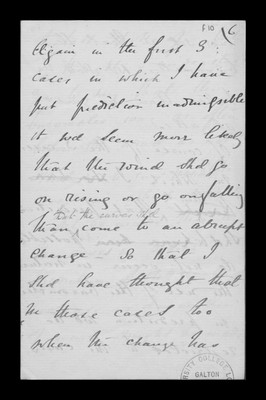 f 10
6
Again in the first 3
cases in which I have
put prediction inadmissible
it wd seem more likely
that the wind shd go
on rising or go on falling
than come to an abrupt
change – So that I
shd have thought that
in those cases too
when the change has
GALTON